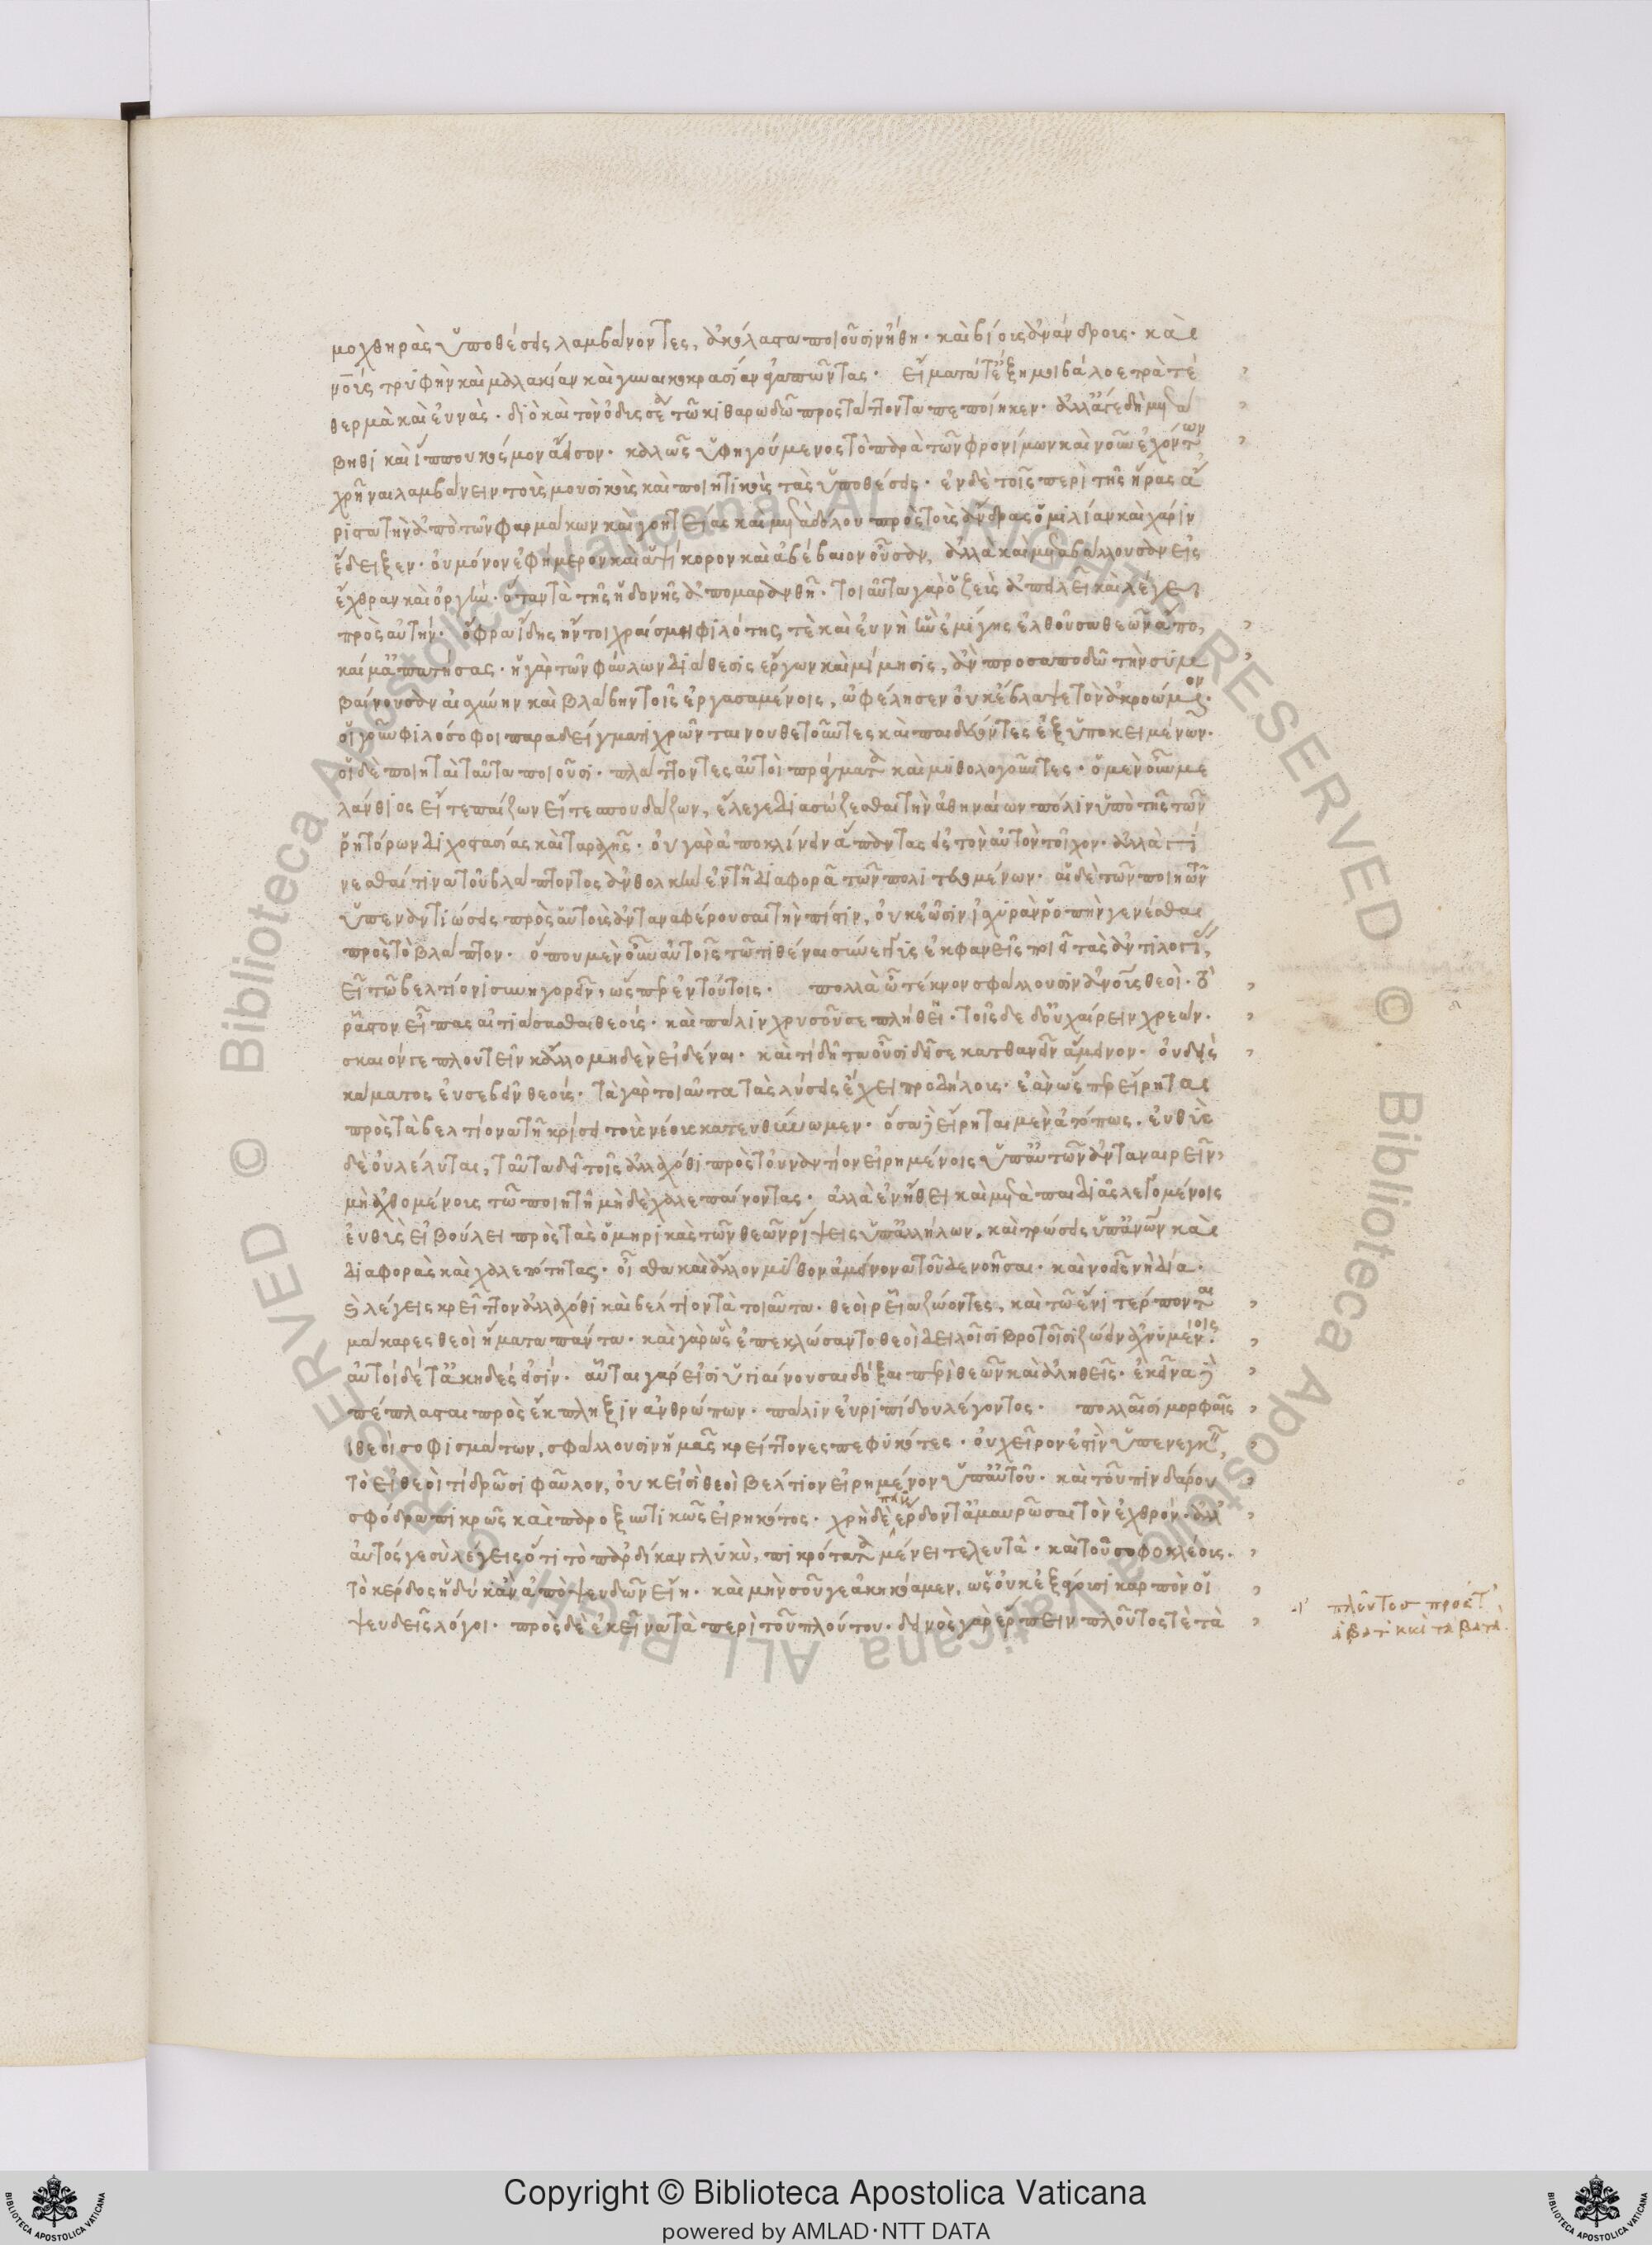 μοχθηρὰς ὑποθέσεις λαμβάνοντες, ἀκόλαστα ποιοῦσιν ἤθη· καὶ βίους ἀνάνδρους· καὶ
νοις τρυφὴν καὶ μαλακίαν καὶ γυναικοκρασίαν ἀγαπῶντας· εἵματά τ' ἐξημοιβὰ λοετρά τε
θερμὰ καὶ εὐνάς· διὸ καὶ τὸν ὀδυσσέα τῶ κιθαρωδῶ προστάττοντα πεποίηκεν· ἀλλ' ἄγε δὴ μετά
βηθι καὶ ἵππου κόσμον ἄεισον· καλῶς ὑφηγούμενος τὸ παρὰ τῶν φρονίμων καὶ νοῦν ἐχόντων
χρῆναι λαμβάνειν τοὺς μουσικοὺς καὶ ποιητικοὺς τὰς ὑποθέσεις· ἐν δὲ τοῖς περὶ τῆς ἥρας ἄ
ριστα τὴν ἀπὸ τῶν φαρμάκων καὶ γοητείας καὶ μετὰ δόλου πρὸς τοὺς ἄνδρας ὁμιλίαν καὶ χάριν
ἔδειξεν· οὐ μόνον ἐφήμερον καὶ ἁψίκορον καὶ ἀβέβαιον οὖσαν, ἀλλὰ καὶ μεταβάλλουσαν εἰς
ἔχθραν καὶ ὀργὴν· ὅταν τὰ τῆς ἡδονῆς ἀπομαρανθῆ· τοιαῦτα γὰρ ὁ ζεὺς ἀπειλεῖ καὶ λέγει
πρὸς αὐτήν· ὄφρα ἴδης ἤν τοι χραίσμη φιλότης τε καὶ εὐνὴ ἣν ἐμίγης ἐλθοῦσα θεῶν ἄπο,
καί μ' ἀπάτησας· ἡ γὰρ τῶν φαύλων διάθεσις ἔργων καὶ μίμησις, ἂν προσαποδῶ τὴν συμ
βαίνουσαν αἰσχύνην καὶ βλάβην τοῖς ἐργασαμένοις, ὠφέλησεν οὐκ ἔβλαψε τὸν ἀκροώμενον·
οἱ γοῦν φιλόσοφοι παραδείγμασι χρῶνται νουθετοῦντες καὶ παιδεύοντες ἐξ ὑποκειμένων·
οἱ δὲ ποιηταὶ ταῦτα ποιοῦσι· πλάττοντες αὐτοὶ πράγματα καὶ μυθολογοῦντες· ὁ μὲν οὖν με
λάνθιος εἴτε παίζων εἴτε σπουδάζων, ἔλεγε διασώζεσθαι τὴν ἀθηναίων πόλιν ὑπὸ τῆς τῶν
ῥητόρων διχοστασίας καὶ ταραχῆς· οὐ γὰρ ἀποκλίνειν ἅπαντας εἰς τὸν αὐτὸν τοῖχον· ἀλλὰ γί
νεσθαί τινα τοῦ βλάπτοντος ἀνθολκὴν ἐν τῆ διαφορᾶ τῶν πολιτευομένων· αἱ δὲ τῶν ποιητῶν
ὑπεναντιώσεις πρὸς αὑτοὺς ἀνταναφέρουσαι τὴν πίστιν, οὐκ ἐῶσιν ἰσχυρὰν ῥοπὴν γενέσθαι
πρὸς τὸ βλάπτον· ὅπου μὲν οὖν αὐτοῖς τῶ τιθέναι σύνεγγυς ἐκφανεῖς ποιεῖ τὰς ἀντιλογίας,
δεῖ τῶ βελτίονι συνηγορεῖν, ὥσπερ ἐν τούτοις· πολλὰ ὦ τέκνον σφάλλουσιν ἀνθρώπους θεοὶ· τὸ
ρᾶστον εἶπας αἰτιάσασθαι θεούς· καὶ πάλιν χρυσοῦ σε πλήθει· τοῖσδε δ' οὐ χαίρειν χρεών·
σκαιόν τε πλουτεῖν κἄλλο μηδὲν εἰδέναι· καὶ τί δῆτα θύειν δεῖ σε κατθανεῖν ἄμεινον· οὐδεὶς
κάματος εὐσεβεῖν θεούς· τὰ γὰρ τοιαῦτα τὰς λύσεις ἔχει προδήλους· ἐὰν ὥσπερ εἴρηται
πρὸς τὰ βελτίονα τῆ κρίσει τοὺς νέους κατευθύνωμεν· ὅσα δ' εἴρηται μὲν ἀτόπως, εὐθὺς
δὲ οὐ λέλυται, ταῦτα δεῖ τοῖς ἀλλαχόθι πρὸς τοὐναντίον εἰρημένοις ὑπ' αὐτῶν ἀνταναιρεῖν,
μὴ ἀχθομένους τῶ ποιητῆ μηδὲ χαλεπαίνοντας· ἀλλὰ ἐν ἤθει καὶ μετὰ παιδιᾶς λεγομένοις
εὐθὺς εἰ βούλει πρὸς τὰς ὁμηρικὰς τῶν θεῶν ῥίψεις ὑπ' ἀλλήλων, καὶ τρώσεις ὑπ' ἀνθρώπων καὶ
διαφορὰς καὶ χαλεπότητας· οἶσθα καὶ ἄλλον μῦθον ἀμείνονα τοῦδε νοῆσαι· καὶ νοεῖν νὴ δία·
καὶ λέγεις κρεῖττον ἀλλαχόθι καὶ βέλτιον τὰ τοιαῦτα· θεοὶ ῥεῖα ζώοντες, καὶ τῶ ἔνι τέρπονται
μάκαρες θεοὶ ἤματα πάντα· καὶ γὰρ ὣς ἐπεκλώσαντο θεοὶ δειλοῖσι βροτοῖσι ζώειν ἀχνυμένοις·
αὐτοὶ δέ τ' ἀκηδές εἰσίν· αὗται γάρ εἰσι ὑγιαίνουσαι δόξαι περὶ θεῶν καὶ ἀληθεῖς· ἐκεῖνα δὲ
πέπλασται πρὸς ἔκπληξιν ἀνθρώπων· πάλιν εὐριπίδου λέγοντος· πολλαῖσι μορφαῖς
οἱ θεοὶ σοφισμάτων, σφάλλουσιν ἡμᾶς κρείττονες πεφυκότες· οὐ χεῖρον ἐστὶν ὑπενεγκεῖν
τὸ εἰ θεοὶ τί δρῶσι φαῦλον, οὐκ εἰσὶ θεοὶ βέλτιον εἰρημένον ὑπ' αὐτοῦ· καὶ τοῦ πινδάρου
σφόδρα πικρῶς καὶ παροξυντικῶς εἰρηκότος· χρὴ δὲ πᾶν ἔρδοντ' ἀμαυρῶσαι τὸν ἐχθρόν· ἀλλ'
αὐτός γε σὺ λέγεις ὅτι τὸ πὰρ δίκαν γλυκὺ, πικρότατα μένει τελευτὰ· καὶ τοῦ σοφοκλέους·
τὸ κέρδος ἡδὺ κἂν ἀπὸ ψευδῶν εἴη· καὶ μὴν σοῦ γε ἀκηκόαμεν, ὡς οὐκ ἐξάγουσι καρπὸν οἱ
ψευδεῖς λόγοι· πρὸς δὲ ἐκεῖνα τὰ περὶ τοῦ πλούτου· δεινὸς γὰρ ἕρπειν πλοῦτος τὲ τὰ
πλοῦτος πρός τ'
ἄβατ' καὶ τὰ βατά.